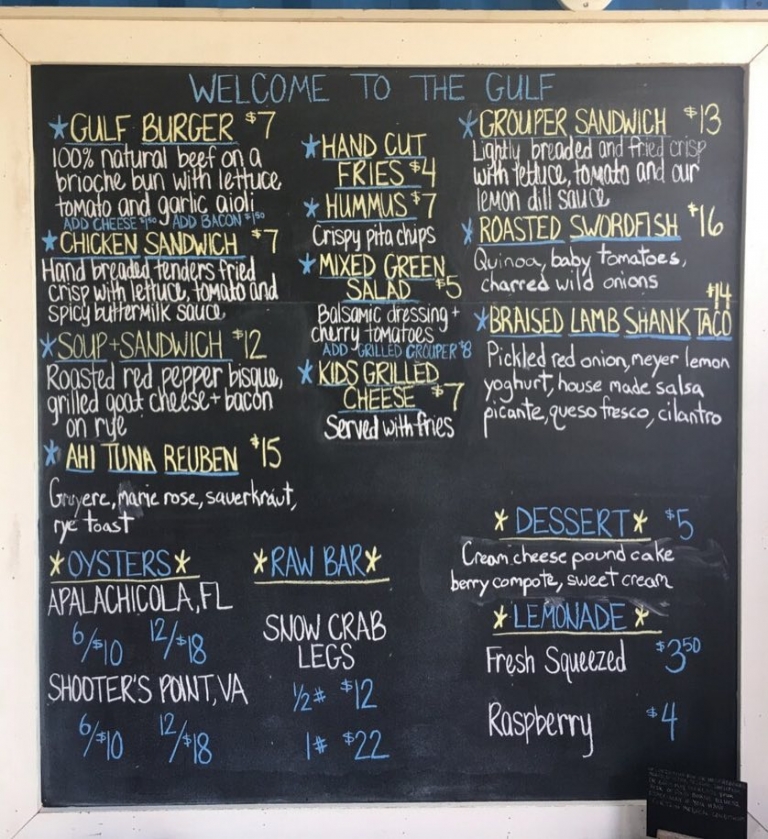 WELCOME TO THE GULF
GULF BURGER $7
100% natural beef on a
brioche bun with lettuce
tomato and garlic aioli
ADD CHEESE $1.50 ADD BACON $1.50
CHICKEN SANDWICH $7
Hand breaded tenders fried
crisp with lettuce, tomato and
spicy buttermilk sauce
SOUP + SANDWICH $12
Roasted red pepper bisque,
grilled goat cheese + bacon
on rye
AHI TUNA REUBEN $15
Gruyere, marie rose, sauerkraut,
rye toast
HAND CUT
FRIES $4
HUMMUS $7
Crispy pita chips
MIXED GREEN
SALAD $5
Balsamic dressing +
cherry tomatoes
ADD GRILLED GROUPER $8
KIDS GRILLED
CHEESE $7
Served with fries
GROUPER SANDWICH $13
Lightly breaded and fried crisp
with lettuce, tomato and our
lemon dill sauce
ROASTED SWORDFISH $16
Quinoa, baby tomatoes,
charred wild onions
$14
BRAISED LAMB SHANK TACO
Pickled red onion, meyer lemon
yoghurt, house made salsa
picante, queso fresco, cilantro
*OYSTERS*
APALACHICOLA, FL
6/$10 12/$18
SHOOTER'S POINT, VA
6/$10 12/$18
*RAW BAR*
SNOW CRAB
LEGS
1/2# $12
1# $22
*DESSERT* $5
Cream cheese pound cake
berry compote, sweet cream
*LEMONADE*
Fresh Squeezed $3.50
Raspberry $4